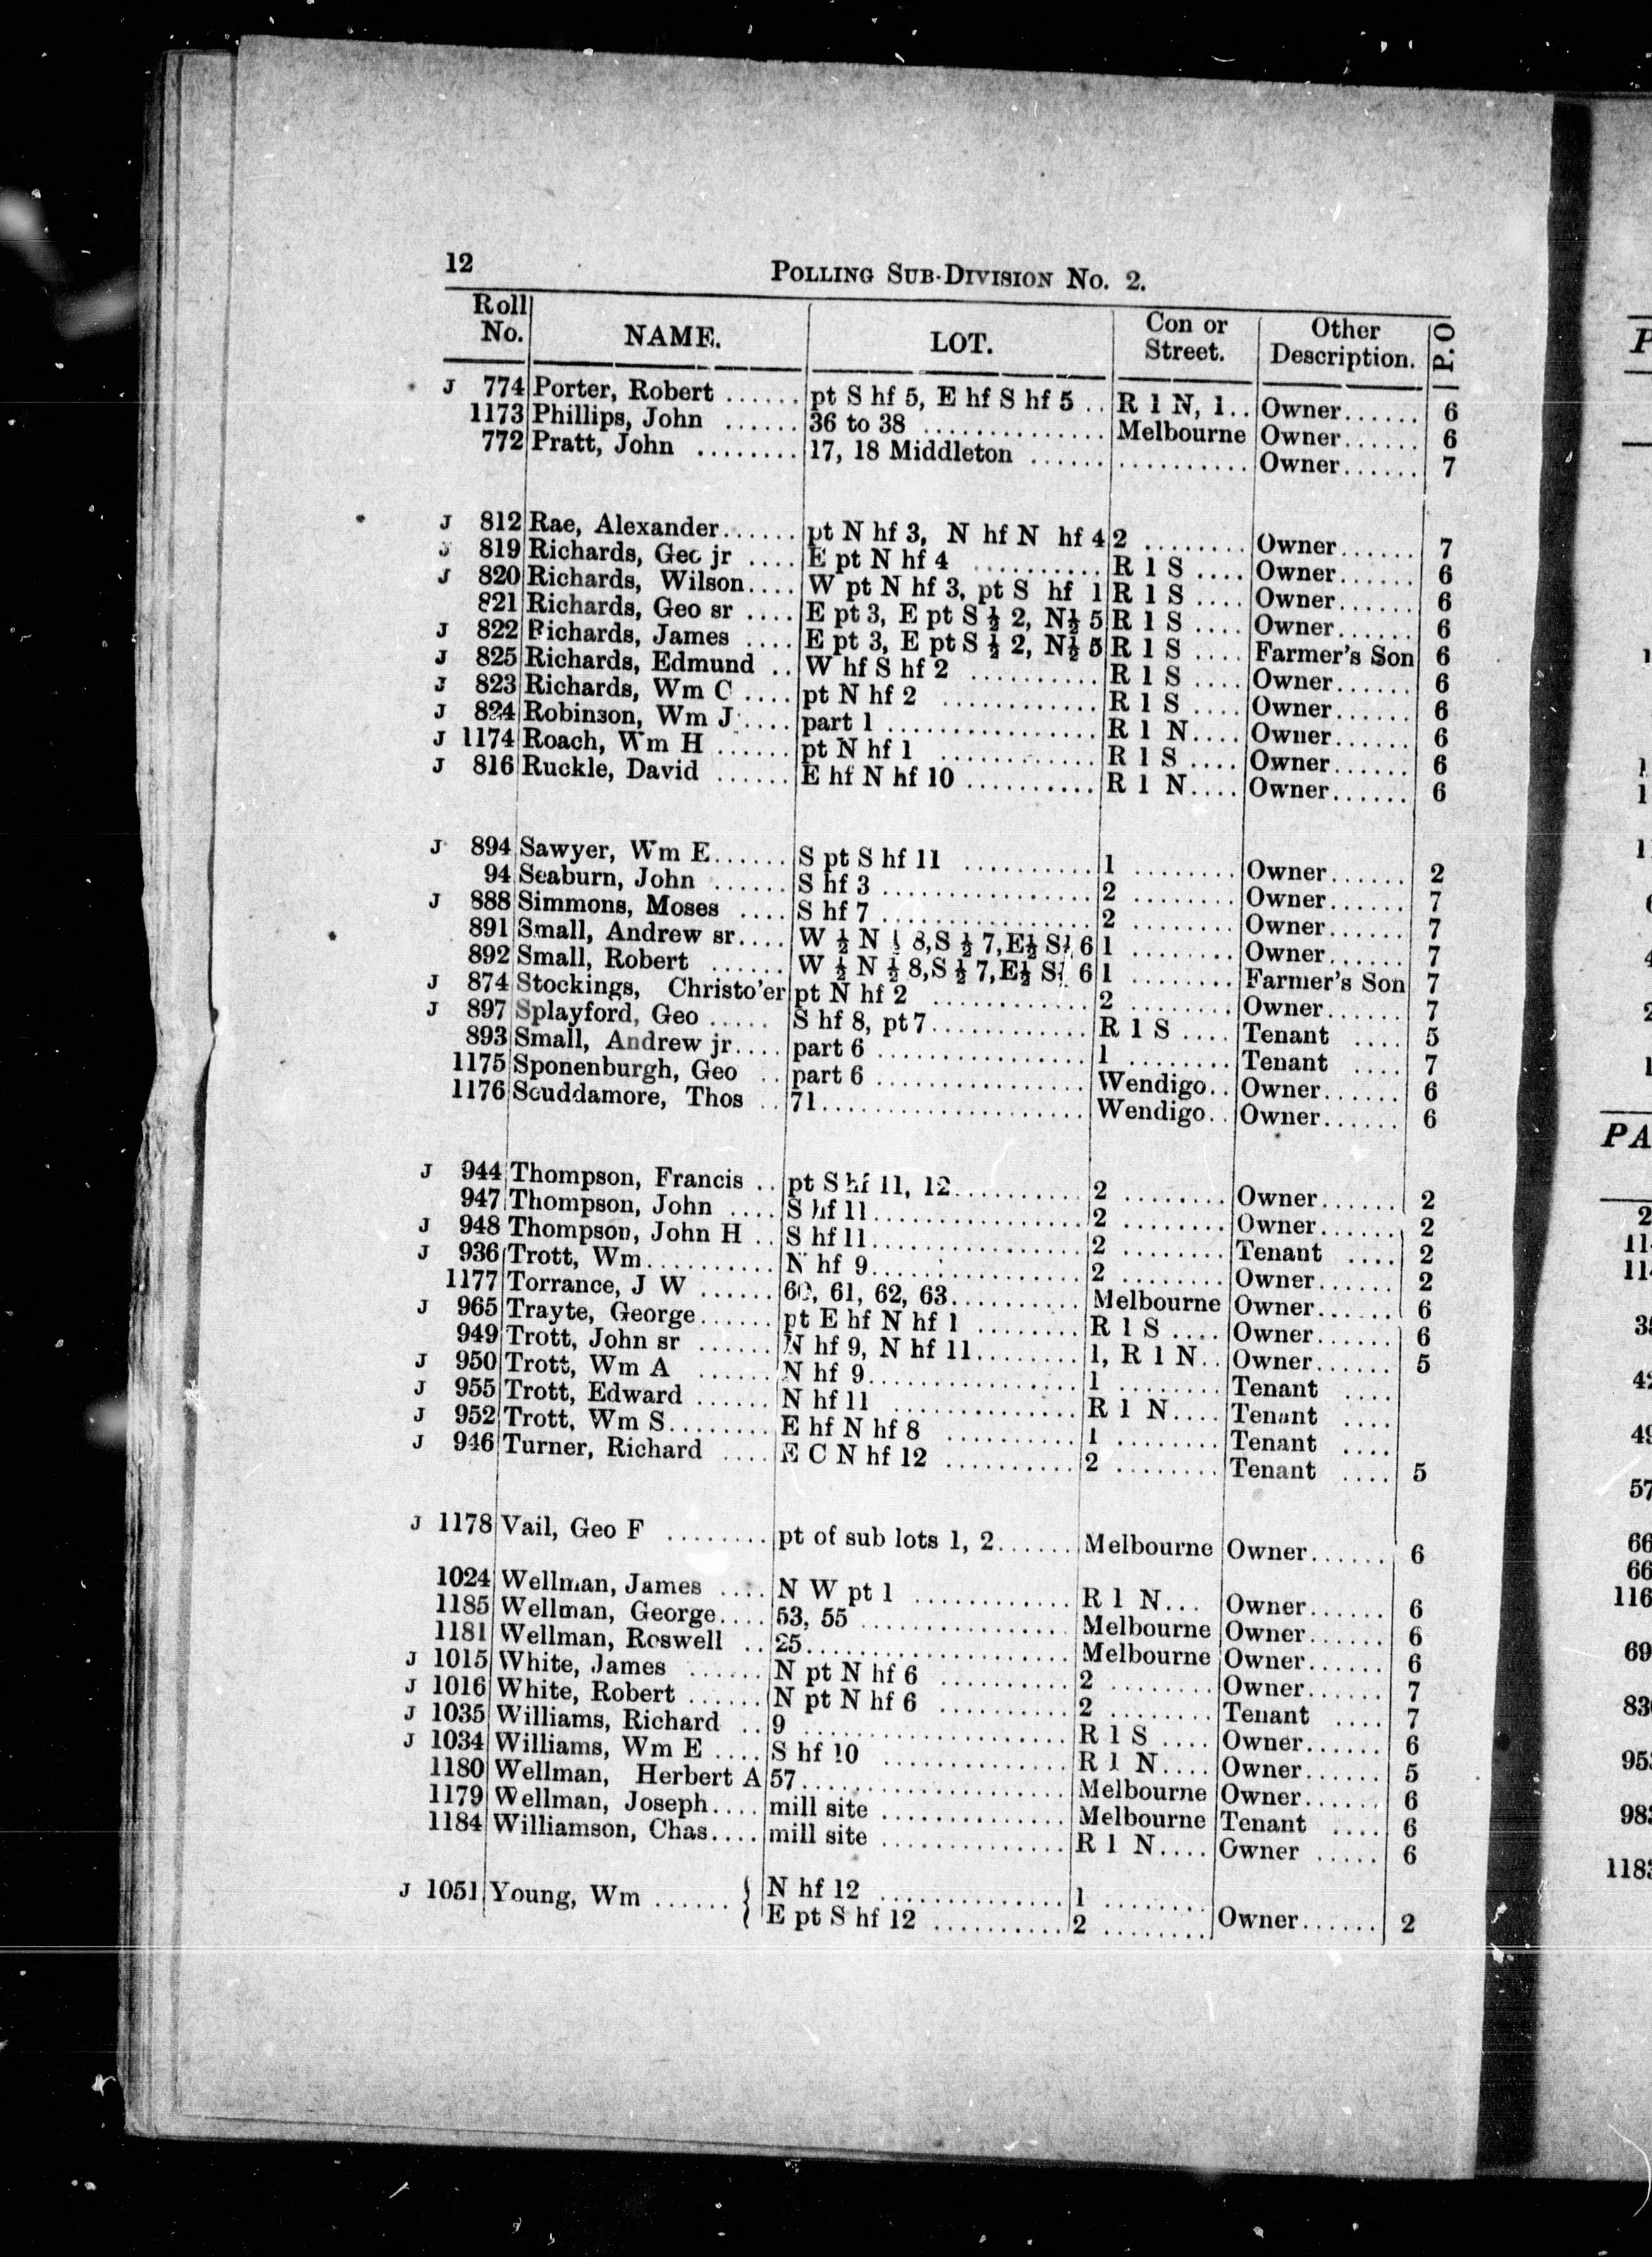 12 POLLING SUB-DIVISION No. 2.
Roll No. NAME. LOT. Con or Street. Other Description. P.O
J 774 Porter, Robert ...... pt S hf 5, E hf S hf 5 .. R 1 N, 1.. Owner...... 6
1173 Phillips, John ...... 36 to 38 .............. Melbourne Owner...... 6
772 Pratt, John ........ 17, 18 Middleton ...... .......... Owner...... 7
J 812 Rae, Alexander...... pt N hf 3, N hf N hf 4 2 ........ Owner...... 7
J 819 Richards, Geo jr .... E pt N hf 4 .......... R 1 S .... Owner...... 6
J 820 Richards, Wilson.... W pt N hf 3, pt S hf 1 R 1 S .... Owner...... 6
821 Richards, Geo sr .... E pt 3, E pt S ½ 2, N½ 5 R 1 S .... Owner...... 6
J 822 Richards, James .... E pt 3, E pt S ½ 2, N½ 5 R 1 S .... Farmer's Son 6
J 825 Richards, Edmund .. W hf S hf 2 .......... R 1 S .... Owner...... 6
J 823 Richards, Wm C .... pt N hf 2 ............ R 1 S .... Owner...... 6
J 824 Robinson, Wm J.... part 1 ................ R 1 N.... Owner...... 6
J 1174 Roach, Wm H ...... pt N hf 1 ............ R 1 S .... Owner...... 6
J 816 Ruckle, David ...... E hf N hf 10 .......... R 1 N.... Owner...... 6
J 894 Sawyer, Wm E...... S pt S hf 11 .......... 1 ........ Owner...... 2
94 Seaburn, John ...... S hf 3 ................ 2 ........ Owner...... 7
J 888 Simmons, Moses .... S hf 7 ................ 2 ........ Owner...... 7
891 Small, Andrew sr.... W ½ N ½ 8, S ½ 7, E½ S½ 6 1 ........ Owner...... 7
892 Small, Robert ...... W ½ N ½ 8, S ½ 7, E½ S½ 6 1 ........ Farmer's Son 7
J 874 Stockings, Christo'er pt N hf 2 ............ 2 ........ Owner...... 7
J 897 Splayford, Geo ..... S hf 8, pt 7............ R 1 S .... Tenant .... 5
893 Small, Andrew jr.... part 6 ................ 1 ........ Tenant .... 7
1175 Sponenburgh, Geo .. part 6 ................ Wendigo.. Owner...... 6
1176 Scuddamore, Thos .. 71.................... Wendigo.. Owner...... 6
J 944 Thompson, Francis .. pt S hf 11, 12.......... 2 ........ Owner...... 2
947 Thompson, John .... S hf 11................ 2 ........ Owner...... 2
J 948 Thompson, John H .. S hf 11................ 2 ........ Tenant .... 2
J 936 Trott, Wm.......... N hf 9................ 2 ........ Owner...... 2
1177 Torrance, J W ...... 60, 61, 62, 63.......... Melbourne Owner...... 6
J 965 Trayte, George...... pt E hf N hf 1 ........ R 1 S .... Owner...... 6
949 Trott, John sr ...... N hf 9, N hf 11........ 1, R 1 N.. Owner...... 5
J 950 Trott, Wm A ...... N hf 9................ 1 ........ Tenant ....
J 955 Trott, Edward ...... N hf 11 .............. R 1 N.... Tenant ....
J 952 Trott, Wm S........ E hf N hf 8 .......... 1 ........ Tenant ....
J 946 Turner, Richard .... E C N hf 12 .......... 2 ........ Tenant .... 5
J 1178 Vail, Geo F ........ pt of sub lots 1, 2...... Melbourne Owner...... 6
1024 Wellman, James .... N W pt 1 ............ R 1 N... Owner...... 6
1185 Wellman, George.... 53, 55 ................ Melbourne Owner...... 6
1181 Wellman, Roswell .. 25.................... Melbourne Owner...... 6
J 1015 White, James ...... N pt N hf 6 .......... 2 ........ Owner...... 7
J 1016 White, Robert ...... N pt N hf 6 .......... 2 ........ Tenant .... 7
J 1035 Williams, Richard .. 9 .................... R 1 S .... Owner...... 6
J 1034 Williams, Wm E .... S hf 10 .............. R 1 N.... Owner...... 5
1180 Wellman, Herbert A 57.................... Melbourne Owner...... 6
1179 Wellman, Joseph.... mill site .............. Melbourne Tenant .... 6
1184 Williamson, Chas.... mill site .............. R 1 N.... Owner ..... 6
J 1051 Young, Wm ...... { N hf 12 .............. 1 ........
E pt S hf 12 .......... 2 ........ Owner...... 2